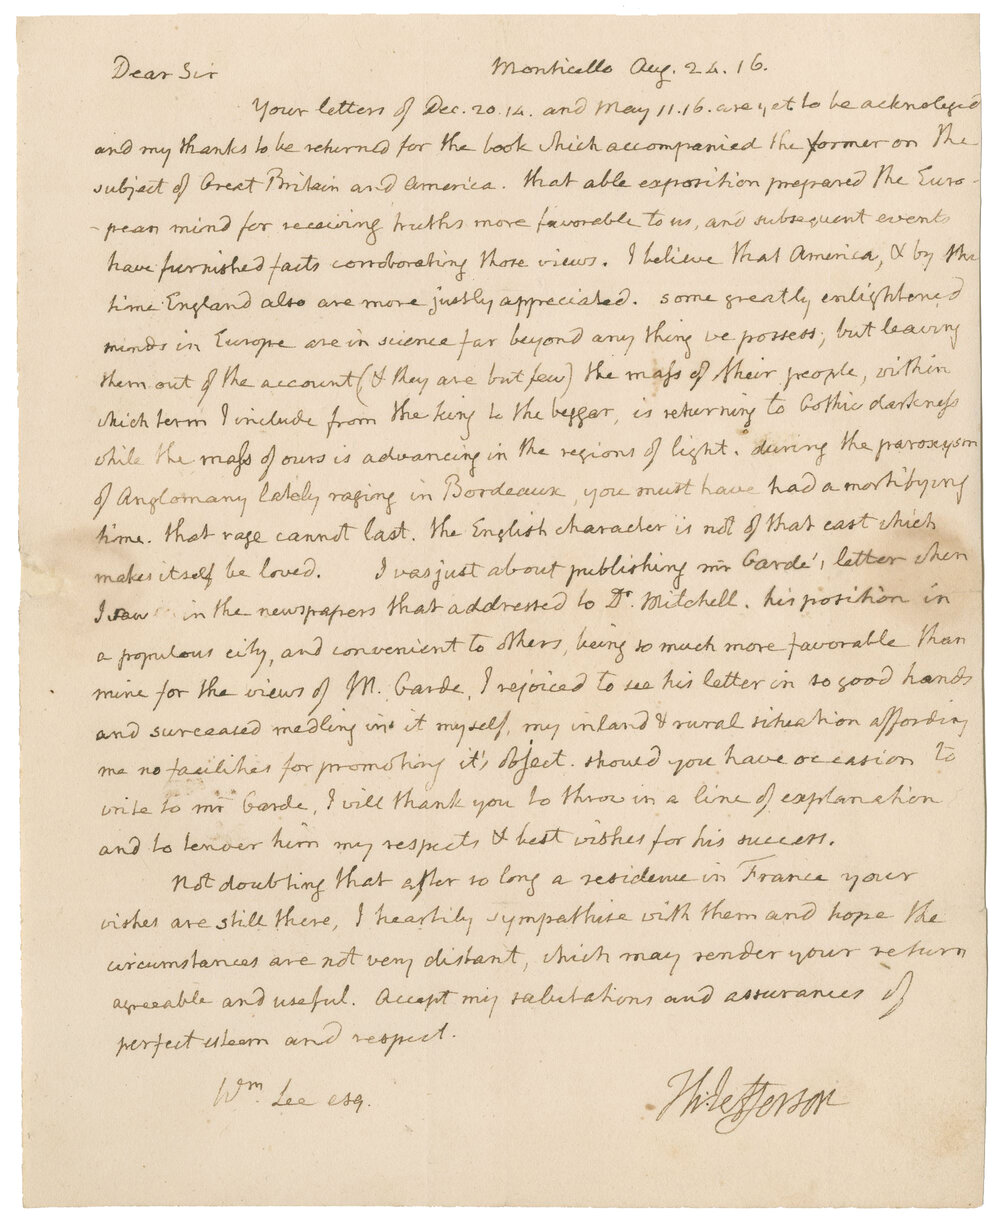 Dear Sir
Monticello Aug. 24. 16.
Your letters of Dec. 20. 14. and May 11. 16. are yet to be acknoleged
and my thanks to be returned for the book which accompanied the former on the
subject of Great Britain and America. that able exposition prepared the Euro-
-pean mind for recieving truths more favorable to us, and subsequent events
have furnished facts corroborating those views. I believe that America, & by this
time England also are more justly appreciated. some greatly enlightened
minds in Europe are in science far beyond any thing we possess; but leaving
them out of the account (& they are but few) the mass of their people, within
which term I include from the king to the beggar, is returning to Gothic darkness
while the mass of ours is advancing in the regions of light. during the paroxysm
of Anglomany lately raging in Bordeaux, you must have had a mortifying
time. that rage cannot last. the English character is not of that cast which
makes itself be loved. I was just about publishing mr Garde's letter when
I saw in the newspapers that addressed to Dr. Mitchell. his position in
a populous city, and convenient to others, being so much more favorable than
mine for the views of M. Garde, I rejoiced to see his letter in so good hands
and surceased medling in it myself, my inland & rural situation affording
me no facilities for promoting it's object. should you have occasion to
write to mr Garde, I will thank you to throw in a line of explanation
and to tender him my respects & best wishes for his success.
Not doubting that after so long a residence in France your
wishes are still there, I heartily sympathise with them and hope the
circumstances are not very distant, which may render your return
agreeable and useful. Accept my salutations and assurances of
perfect esteem and respect.
Wm. Lee esq.
Th: Jefferson